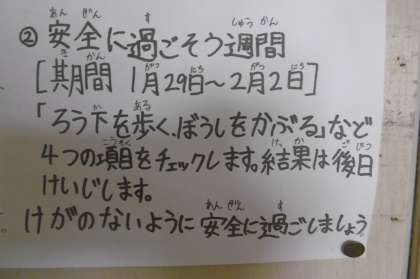 ② 安全に過ごそう週間
[期間 1月29日～2月2日]
「ろう下を歩く、ぼうしをかぶる」など
4つの項目をチェックします。結果は後日
けいじします。
けがのないように安全に過ごしましょう